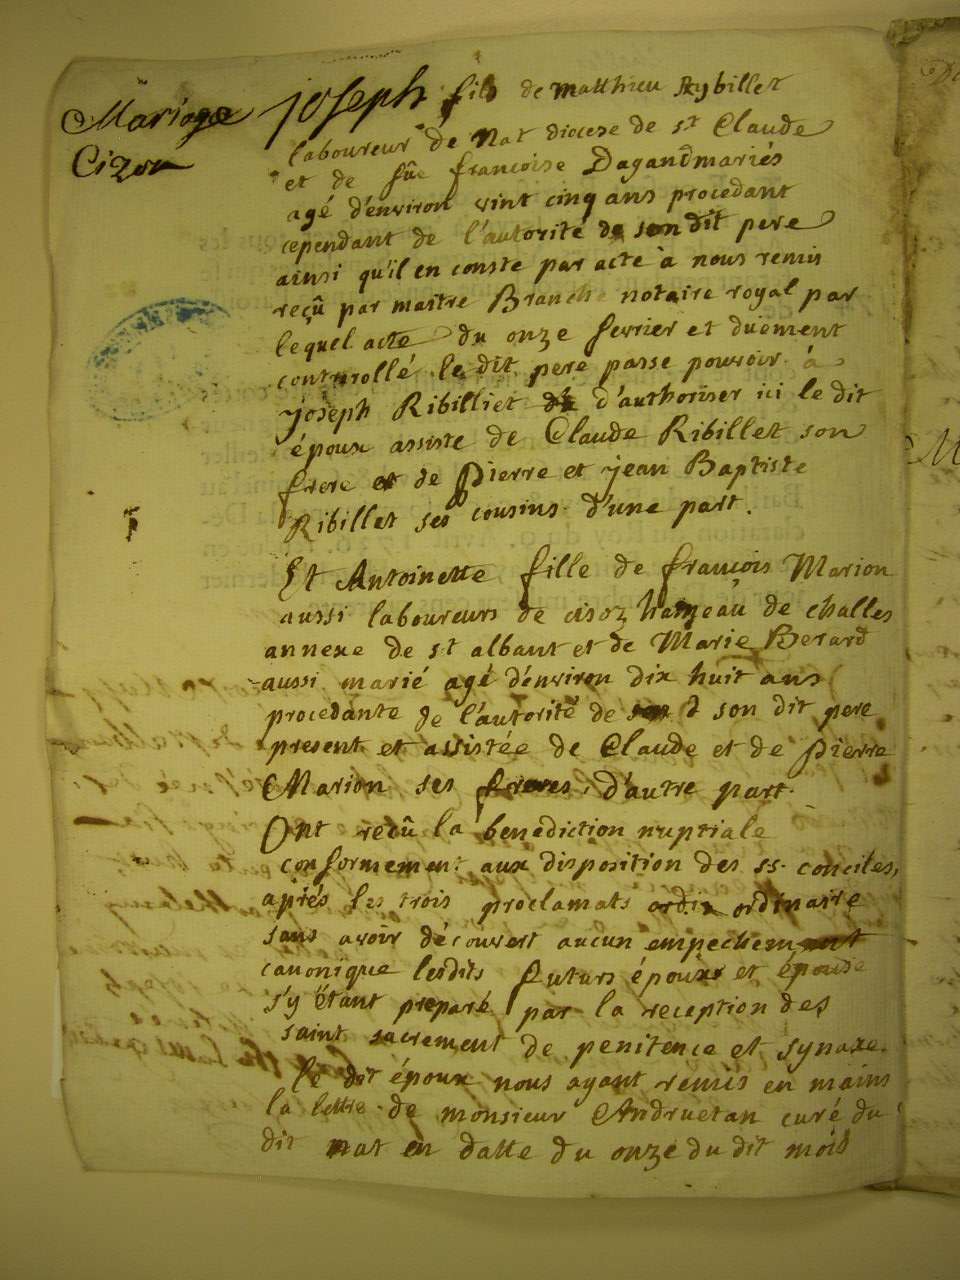 Mariage
Cizor
joseph fils de matthieu Rybillet
laboureur de Nat diocese de st Claude
et de fûe francoise Dagand mariés
agé d'environ vint cinq ans procedant
cependant de l'autorité de son dit pere
ainsi qu'il en conste par acte à nous remis
reçû par maitre Branche notaire royal par
lequel acte du onze fevrier et duement
controllé le dit pere passe pouvoir à
joseph Ribilliet d'authoriser ici le dit
époux assiste de Claude Ribillet son
frere et de Pierre et jean Baptiste
Ribillet ses cousins d'une part.
Et Antoinette fille de françois Marion
aussi laboureurs de cisoz hameau de challes
annexe de st albant et de Marie Berard
aussi marié agé d'environ dix huit ans
procedante de l'autorité de son dit pere
present et assistée de Claude et de Pierre
Marion ses freres, d'autre part.
Ont reçû la benediction nuptiale
conformement aux disposition des ss. conciles,
aprés les trois proclamats ordinaire
sans avoir découvert aucun empechement
canonique lesdits futurs époux et épouse
s'y étant preparé par la reception des
saint sacrement de penitence et synaxe.
le dit époux nous ayant remis en mains
la lettre de monsieur Andruetan curé du
dit nat en datte du onze du dit mois